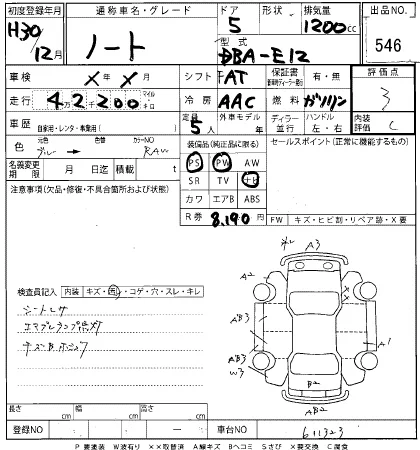 初度登録年月 通称車名・グレード ドア 形状 排気量 出品NO.
H30/12月 ノート 5 1200cc 546
型式 DBA-E12
車検 × 年 × 月 シフト FAT 保証書 有・無 評価点
走行 4万2200 マイル キロ 冷房 AAC 燃料 ガソリン 3
車歴 自家用・レンタ・事業用( ) 定員 5人 外車モデル 年 ディーラー 並行 ハンドル 左・右 内装評価 C
色 元色 ブルー → 色替 カラーNO RAW 装備品(純正品に限る) セールスポイント(正常に機能するもの)
PS PW AW
名義変更期限 月 日 迄 積載 t SR TV ナビ
注意事項(欠品・修復・不具合箇所および状態) カワ エアB ABS
R券 8,190円 FW キズ・ヒビ割・リペア跡・X要
A3
A2
検査員記入 内装 キズ・汚・コゲ・穴・スレ・キレ
シートヨゴレ
エアB3
A1
AB3
W3
B2
AB2
長さ cm 幅 cm 高さ cm
登録NO ー 車台NO 611323
P 要塗装 W波有り ××取替済 A線キズ Bヘコミ Sさび ×要交換 C腐食